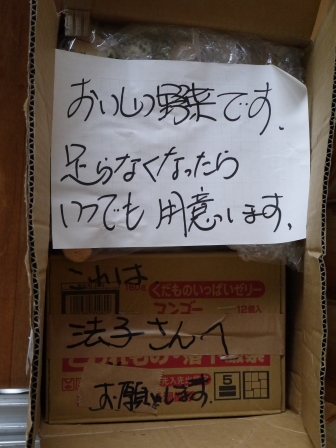 おいしい野菜です.
足らなくなったら
いつでも用意します.
これは
くだものいっぱいゼリー
マンゴー
12個入
法子さんへ
お願いします.
5